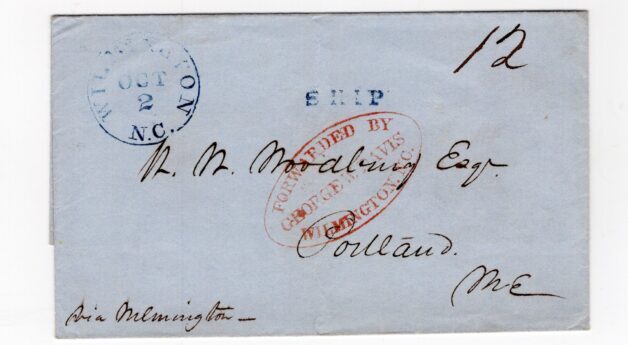 WILMINGTON
OCT
2
N.C.
12
SHIP
FORWARDED BY
GEORGE W. DAVIS
WILMINGTON, N.C.
N. N. Woodbury Esqr.
Portland.
Me
via Wilmington —